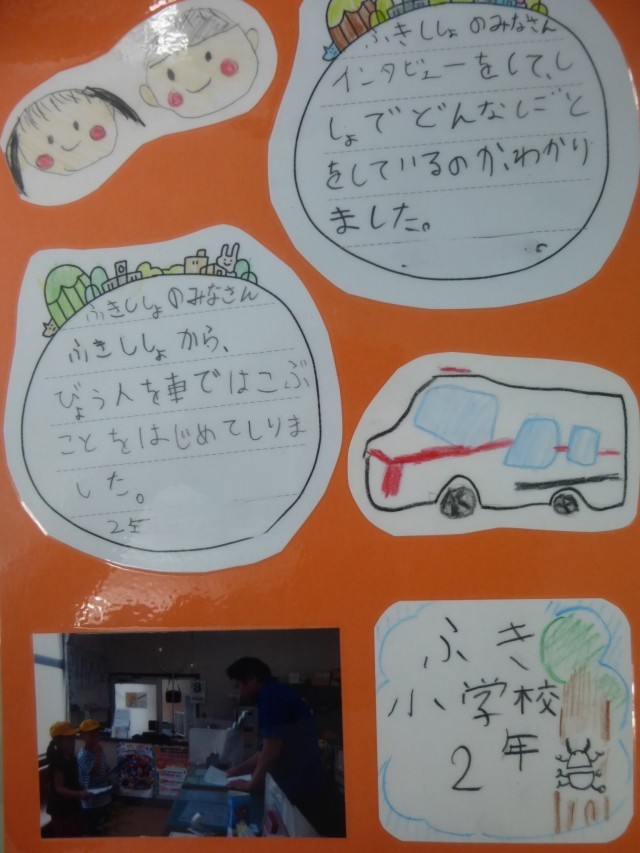 ふきししょのみなさん
インタビューをして、し
しょでどんなしごと
をしているのか、わかり
ました。
ふきししょのみなさん
ふきししょから、
びょう人を車ではこぶ
ことをはじめてしりま
した。
2年
ふき
小学校
2年